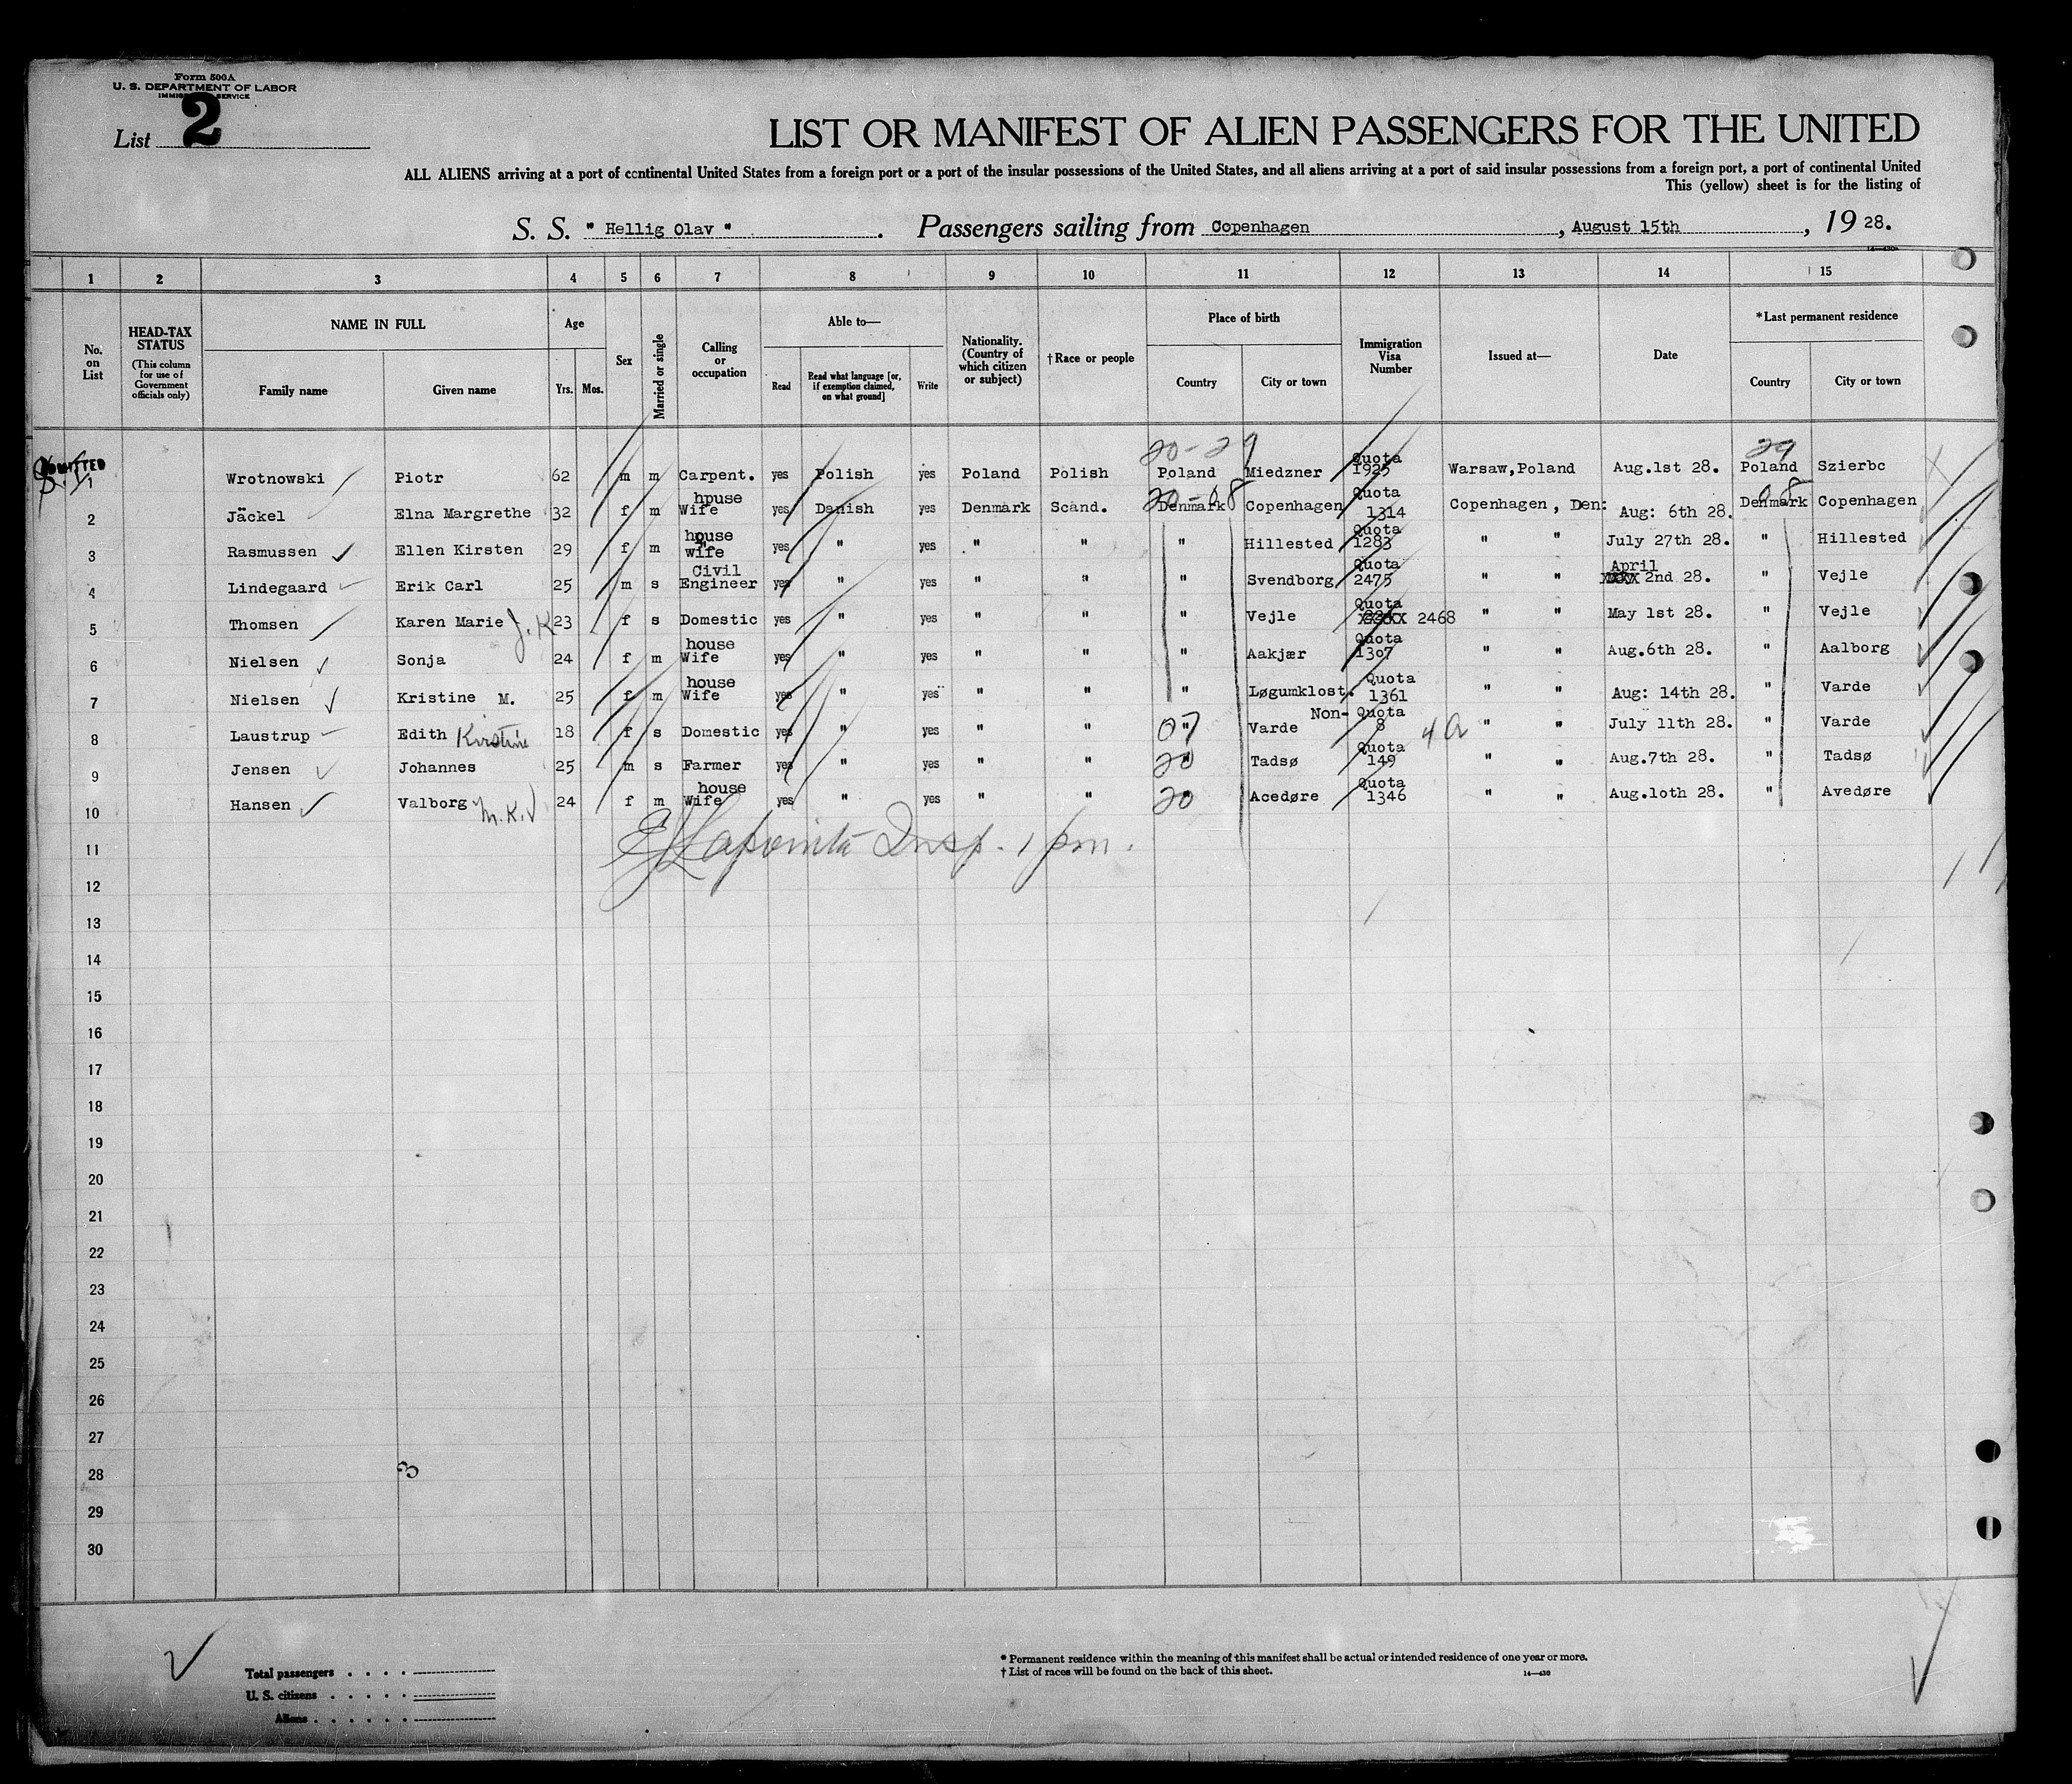 Form 500A
U. S. DEPARTMENT OF LABOR
List 2
LIST OR MANIFEST OF ALIEN PASSENGERS FOR THE UNITED
ALL ALIENS arriving at a port of continental United States from a foreign port or a port of the insular possessions of the United States, and all aliens arriving at a port of said insular possessions from a foreign port, a port of continental United
This (yellow) sheet is for the listing of
S. S. " Hellig Olav " . Passengers sailing from Copenhagen , August 15th , 19 28.
1 2 3 4 5 6 7 8 9 10 11 12 13 14 15
No. on List
HEAD-TAX STATUS (This column for use of Government officials only)
NAME IN FULL Family name Given name
Age Yrs. Mos.
Sex
Married or single
Calling or occupation
Able to— Read Read what language [or, if exemption claimed, on what ground] Write
Nationality. (Country of which citizen or subject)
†Race or people
Place of birth Country City or town
Immigration Visa Number
Issued at—
Date
*Last permanent residence Country City or town
ADMITTED
20-29 29
1 Wrotnowski Piotr 62 m m Carpent. yes Polish yes Poland Polish Poland Miedzner Quota 1925 Warsaw,Poland Aug.1st 28. Poland Szierbc
20-08 08
2 Jäckel Elna Margrethe 32 f m hpuse Wife yes Danish yes Denmark Scand. Denmark Copenhagen Quota 1314 Copenhagen, Den: Aug: 6th 28. Denmark Copenhagen
3 Rasmussen Ellen Kirsten 29 f m house wife yes " yes " " " Hillested Quota 1283 " " July 27th 28. " Hillested
4 Lindegaard Erik Carl 25 m s Civil Engineer yes " yes " " " Svendborg Quota 2475 " " April 2nd 28. " Vejle
5 Thomsen Karen Marie J. K 23 f s Domestic yes " yes " " " Vejle Quota 2468 " " May 1st 28. " Vejle
6 Nielsen Sonja 24 f m house Wife yes " yes " " " Aakjær Quota 1307 " " Aug.6th 28. " Aalborg
7 Nielsen Kristine M. 25 f m house Wife yes " yes " " " Løgumklost. Quota 1361 " " Aug: 14th 28. " Varde
8 Laustrup Edith Kirstine 18 f s Domestic yes " yes " " 07 " Varde Non-Quota 8 4 a " " July 11th 28. " Varde
9 Jensen Johannes 25 m s Farmer yes " yes " " 20 " Tadsø Quota 149 " " Aug.7th 28. " Tadsø
10 Hansen Valborg M.K. 24 f m house Wife yes " yes " " 20 " Acedøre Quota 1346 " " Aug.10th 28. " Avedøre
11 Insp. 1 pm.
12
13
14
15
16
17
18
19
20
21
22
23
24
25
26
27
28 3
29
30
Total passengers . . . .
U. S. citizens . . . . .
Aliens . . . . . .
* Permanent residence within the meaning of this manifest shall be actual or intended residence of one year or more.
† List of races will be found on the back of this sheet.
14—430